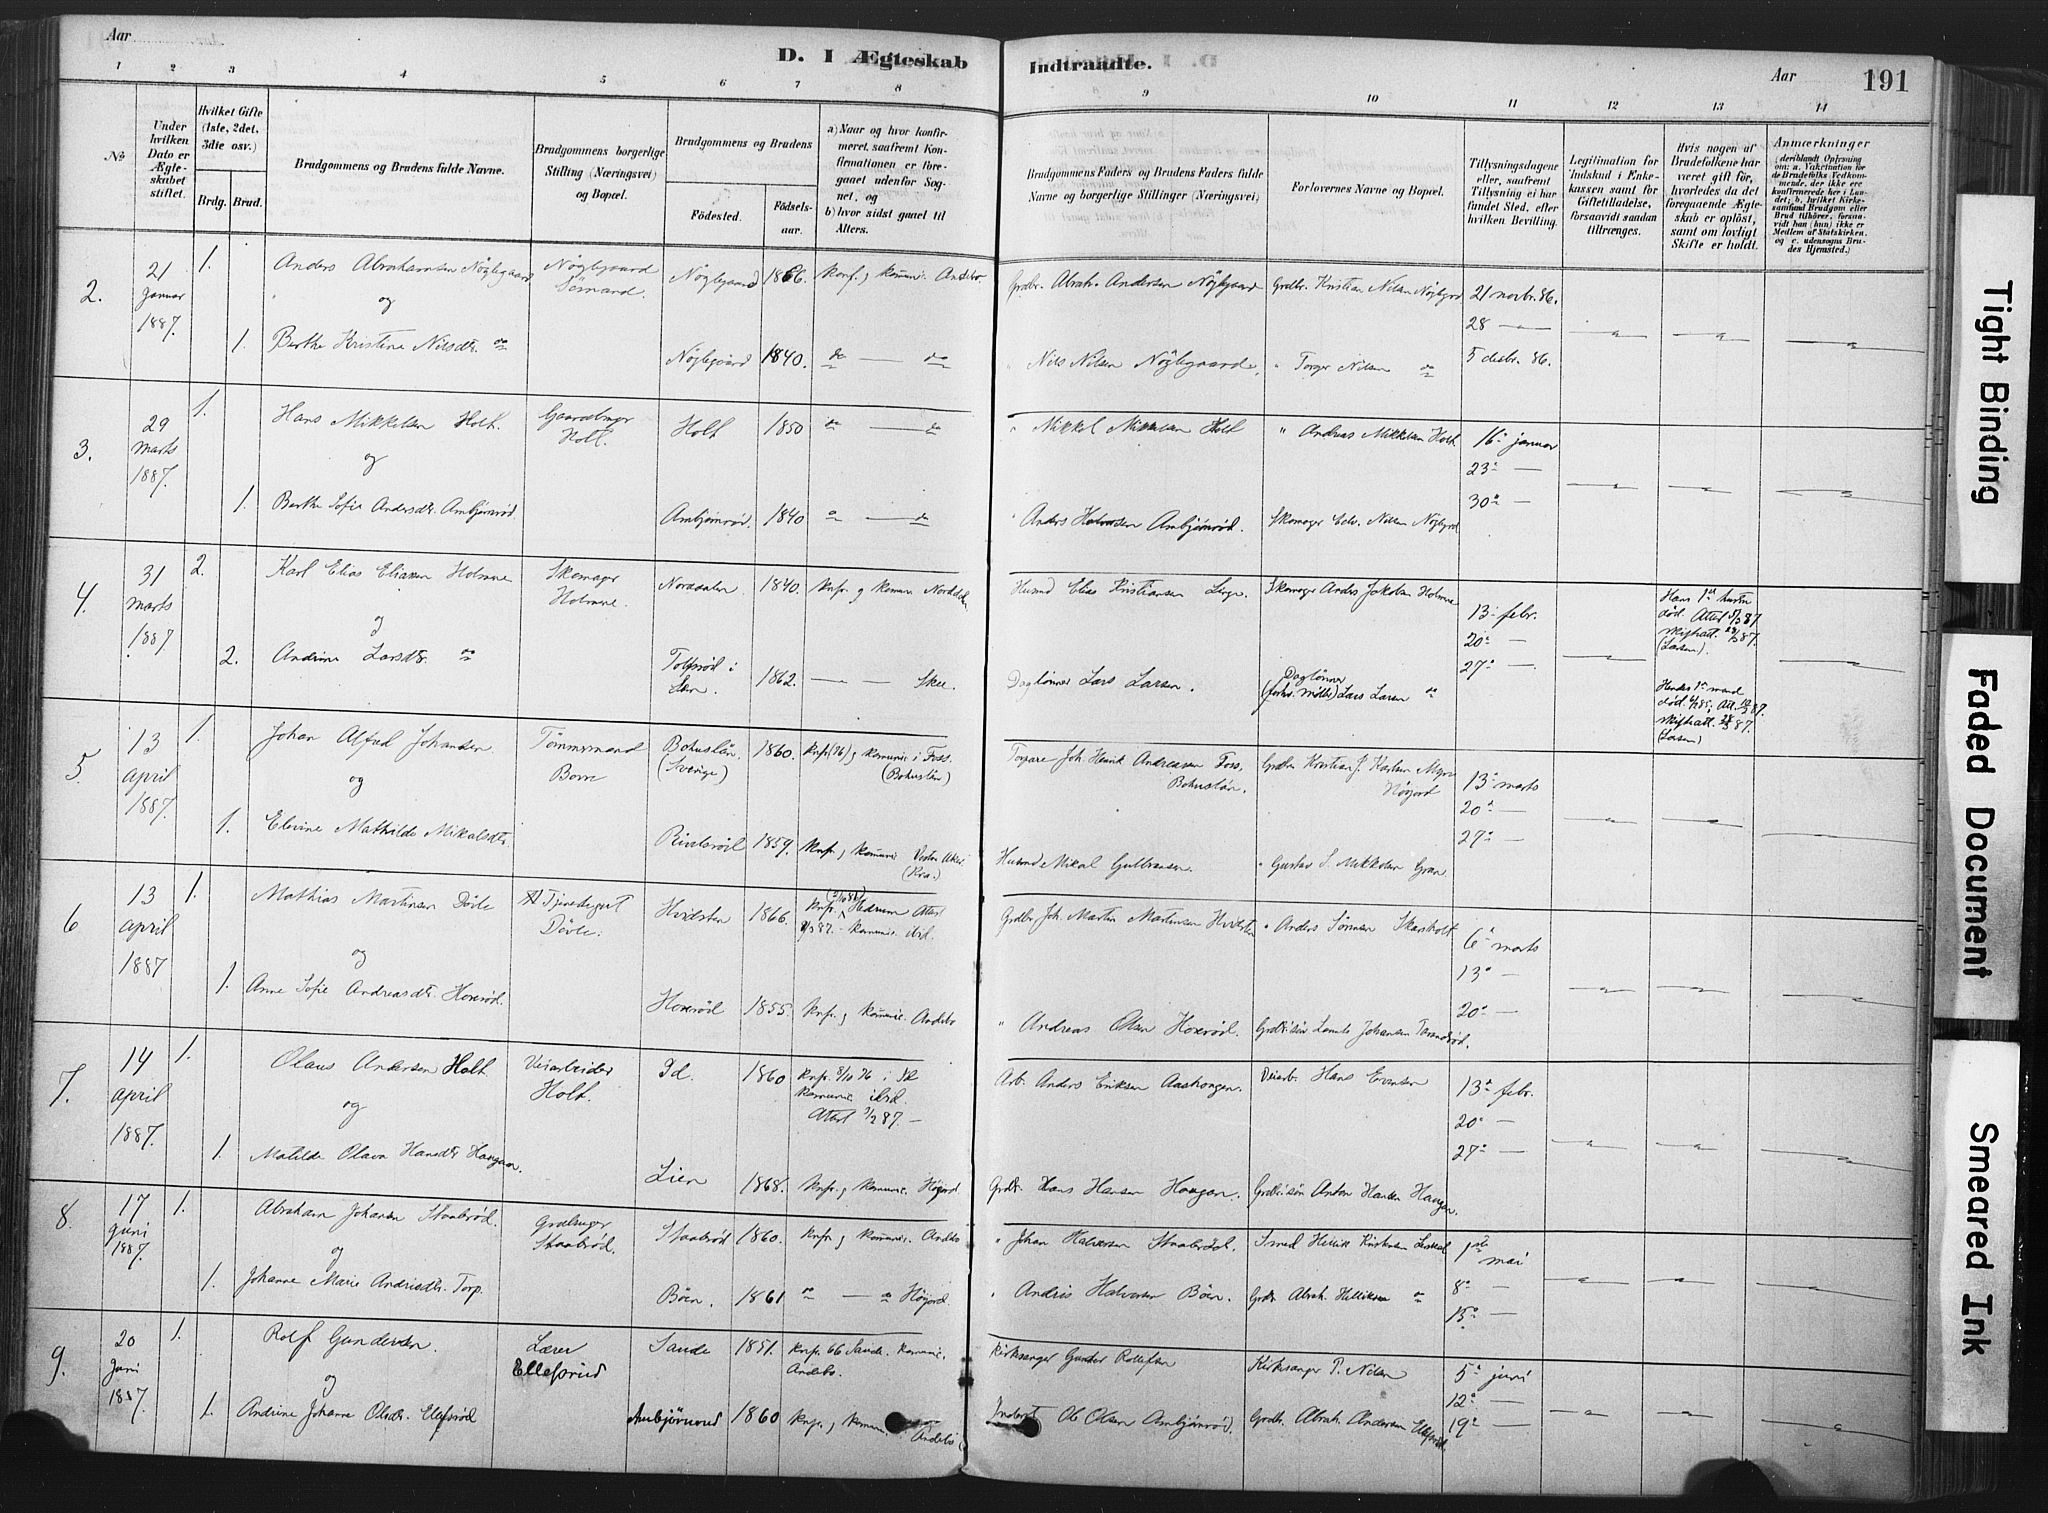 Aar
D. I Ægteskab
Indtraadte.
Aar
191
1 2 3 4 5 6 7 8 9 10 11 12 13 14
No
Under hvilken Dato er Ægteskabet stiftet.
Hvilket Gifte (1ste, 2det, 3die osv.)
Brdg. Brud.
Brudgommens og Brudens fulde Navne.
Brudgommens borgerlige Stilling (Næringsvei) og Bopæl.
Brudgommens og Brudens
Födested.
Födsels-aar.
a) Naar og hvor konfirmeret, saafremt Konfirmationen er foregaaet udenfor Sognet, og
b) hvor sidst gaaet til Alters.
Brudgommens Faders og Brudens Faders fulde Navne og borgerlige Stillinger (Næringsvei)
Forlovernes Navne og Bopæl.
Tillysningsdagene eller, saafremt Tillysning ei har fundet Sted, efter hvilken Bevilling.
Legitimation for Indskud i Enkekassen samt for Giftetilladelse, forsaavidt saadan tiltrænges.
Hvis nogen af Brudefolkene har været gift för, hvorledes da det foregaaende Ægteskab er oplöst, samt om lovligt Skifte er holdt.
Anmærkninger
(deriblandt Oplysning om: a. Vaksination for de Brudefolks Vedkommende, der ikke ere konfirmerede her i Landet; b. hvilket Kirkesamfund Brudgom eller Brud tilhörer, forsaavidt han (hun) ikke er Medlem af Statskirken, og c. udensogns Brudes Hjemsted.)
2. 21 Januar 1887. 1. Anders Abrahamsen Nøglegaard Nøglegaard Sømand. Nøglegaard 1866. konf. og kommunic. Andebo. Grdbr. Abrah. Andersen Nøglegaard Grdbr. Kristian Nilsen Nøglegrd 21 novbr. 86.
og
28 —
1. Berthe Kristine Nilsdtr. do Nøglegaard 1840. do — do " Nils Nilsen Nøglegaard. " Torger Nilsen do 5 desbr. 86.
3. 29 Marts 1887. 1. Hans Mikkelsen Holt. Gaardbruger Holt. Holt 1850 do — do " Mikkel Mikkelsen Holt " Andreas Mikkelsen Holt 16de januar
og
23de —
1. Berthe Sofie Andersdtr. Ambjørnrød. Ambjørnrød. 1840 do — do " Anders Halvorsen Ambjørnrød. Skomager Edv. Nilsen Nøglegrd 30de —
4. 31 Marts 1887. 2. Karl Elias Eliassen Holmene Skomager Holmene. Norddalen 1840. Knf. og kommun. Norddalen Husmd Elias Kristiansen Linge. Skomager Anders Jakobsen Holmene 13de febr. Hans 1ste hustru død.
og
20de —
2. Andrine Larsdtr. do Tolfsrød i Sem. 1862. — — Skee. Dagløner Lars Larsen. Dagløner (forhv. møller) Lars Larsen do 27de — Hendes 1ste mand død.
5. 13 April 1887. 1. Johan Alfred Johansen Tømmermand Borre Bohuslän. (Sverige) 1860. Knf. (76) og kommunic. i Foss. (Bohuslän) Torpare Joh. Henrik Andreasen Foss, Bohuslän. Grdbr Kristian J. Karlsen Myre Høijord 13de marts
og
20de —
1. Elevine Mathilde Mikalsdtr. 1859. Knf. og kommunic. Vestre Aker (Kra.) Husmd Mikal Gulbransen. " Gustav S. Mikkelsen Gran 27de —
6 13 April 1887 1. Mathias Martinsen Døvle Tjenestegut Døvle. Hvidsten 1866. Knf. Hedrum Attest kommunic. ibid. Grdbr Joh. Martin Martinsen Hvidsten " Anders Sørensen Skarsholt 6te marts
og
13de —
1. Anne Sofie Andreasdtr. Horsrød. Horsrød 1855. Knf. og kommunic. Andebo " Andreas Olsen Horsrød. Grdbr.søn Johansen 20de —
7. 14 April 1887. 1. Olaus Andersen Holt Veiarbeider Holt. Id. 1860 Knf. 8/10 76 i Id kommunic. ibid. Attest 7/2 87. Arb. Anders Eriksen Aashougen. Veiarb. Hans Evensen 13de febr.
og
20de —
1. Matilde Olava Hansdtr Haugan. Lien 1868. Knf. og kommunic. Høijord. Grdbr. Hans Hansen Haugan. Grdbr.søn Anton Hansen Haugan. 27de —
8. 17 Juni 1887. 1. Abraham Johansen Staabrød. Grdbruger Staabrød. Staabrød 1860. Knf. og kommunic. Andebo " Johan Halvorsen Staabrød. Smed Henrik Kristensen 1ste mai
og
8de —
1. Johanne Marie Andrisdtr. Torp. Bøen. 1861 do — do Høijord. " Andris Halvorsen Bøen. Grdbr. Abrah. Hellikesen do 15de —
9. 20 Juni 1887. 1. Rolf Gundersen. Lærer Ellefsrud Sande 1851. Knf. 66 Sande. kommunic. Andebo. Kirkesanger Gunder Rollefsen Kirkesanger P. Nilsen 5te juni
og
12te —
1. Andrine Johanne Olsdtr. Ellefsrød Ambjørnrud 1860 Knf. og kommunic. Andebo Inderst Ole Olsen Ambjørnrød. Grdbr. Abrah. Andersen Ellefsrød. 19de —
Tight Binding
Faded Document
Smeared Ink